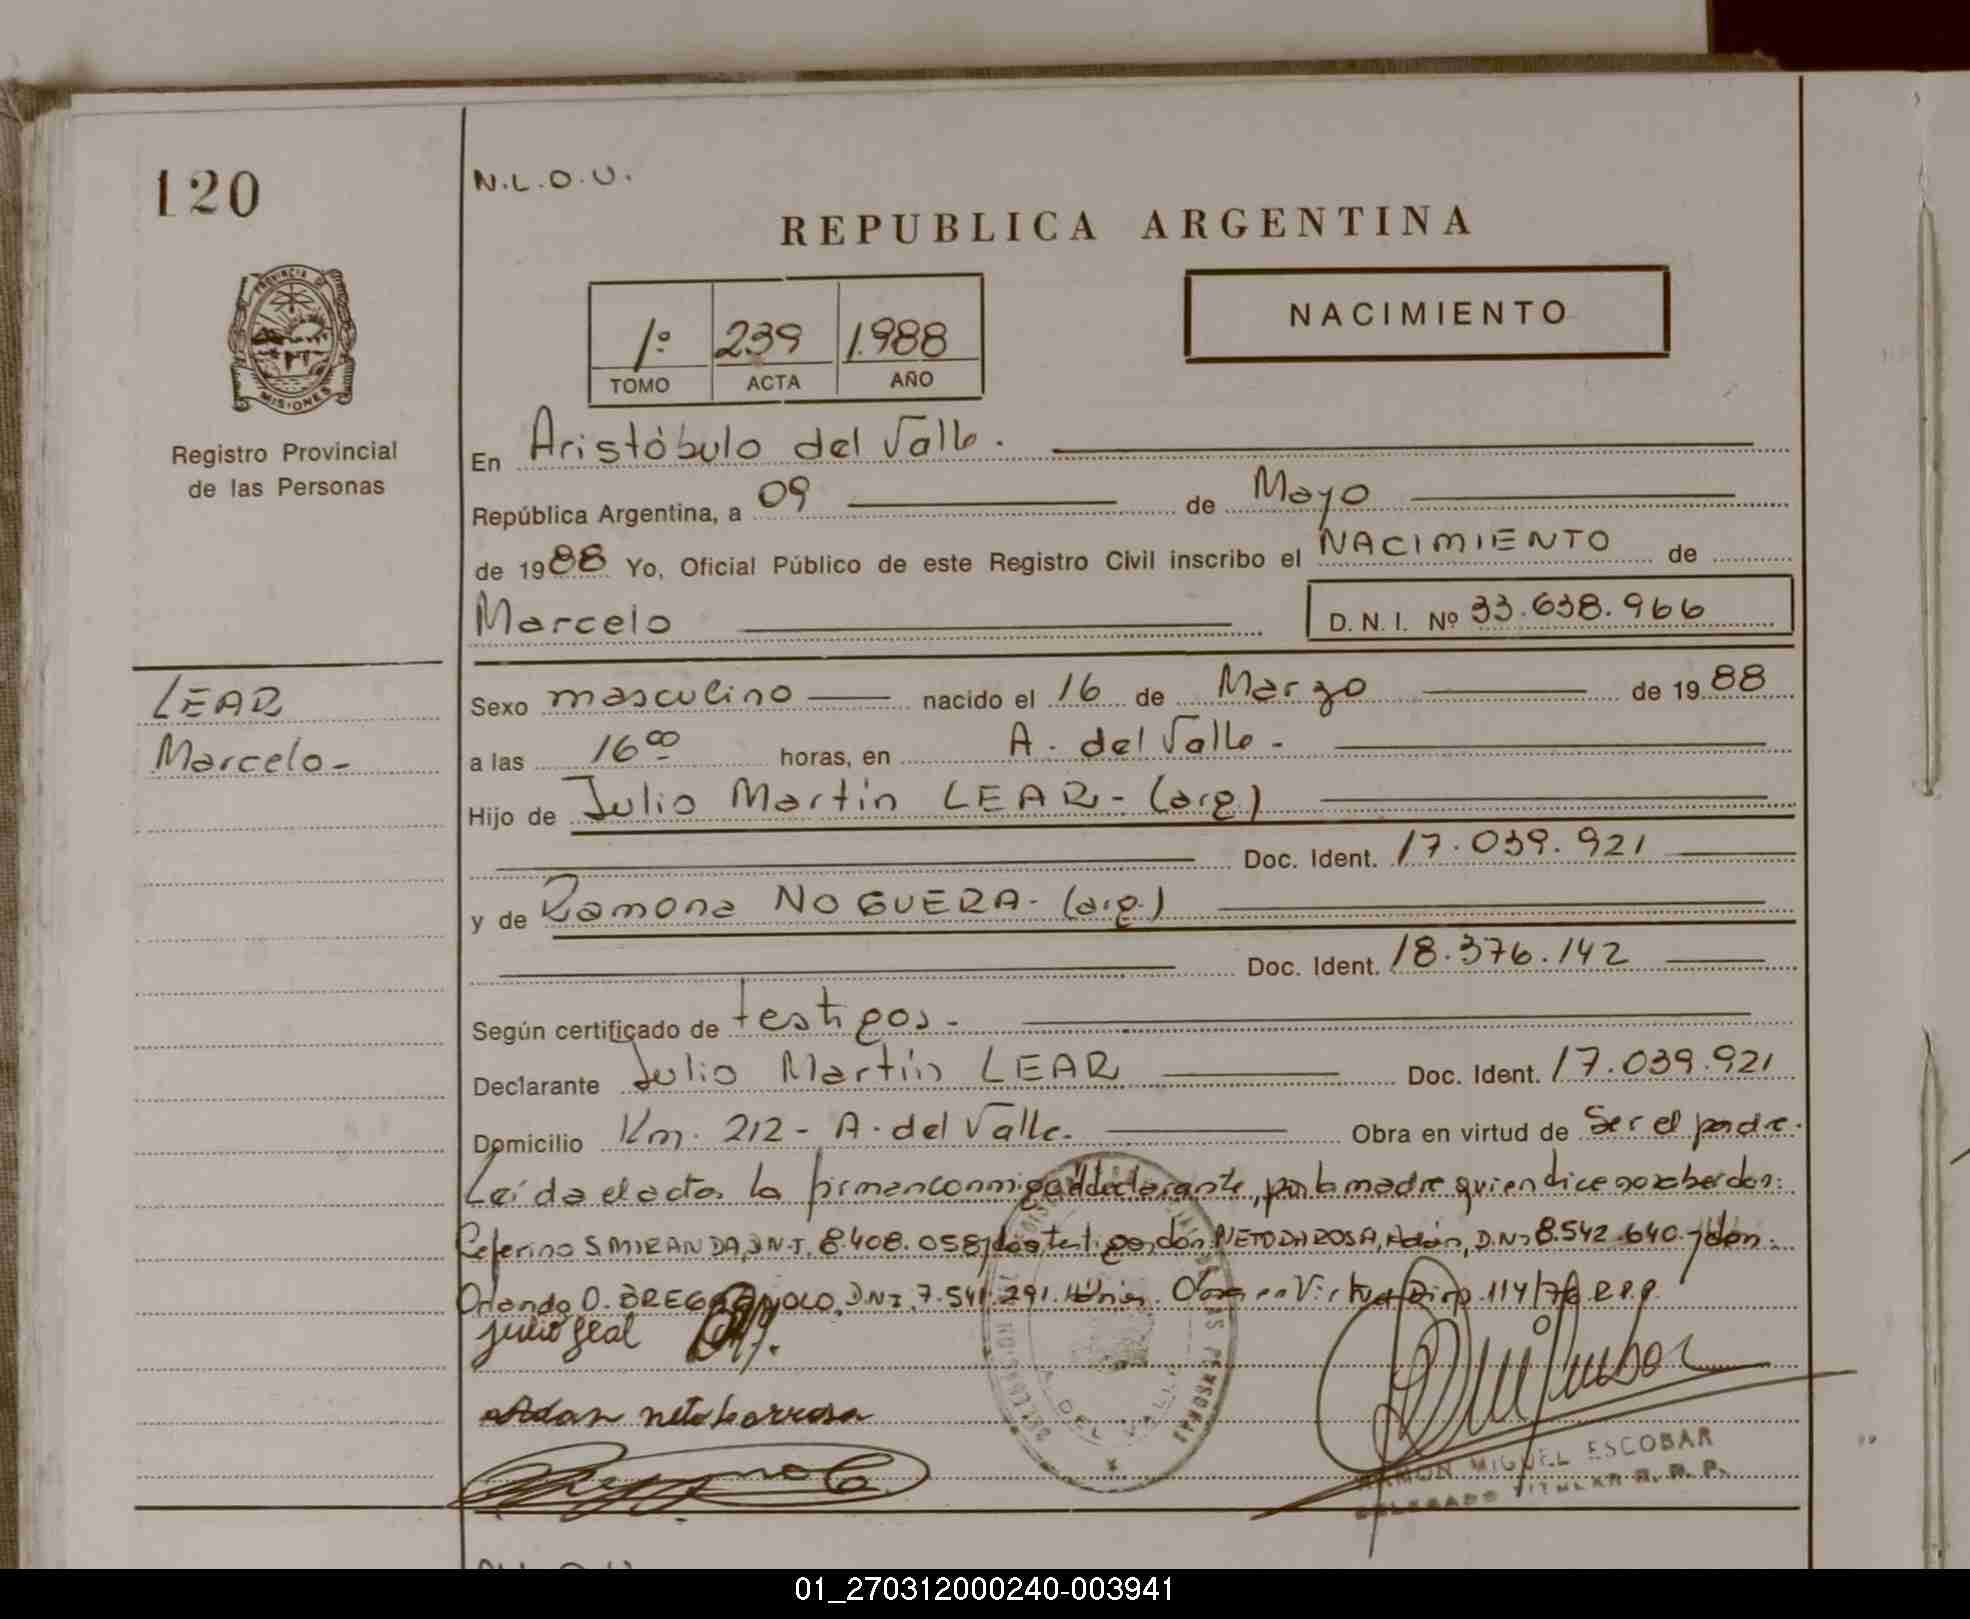 120
N.L.O.U.
REPUBLICA ARGENTINA
PROVINCIA DE
MISIONES
Registro Provincial
de las Personas
1º 239 1.988
TOMO ACTA AÑO
NACIMIENTO
En Aristóbulo del Valle.
República Argentina, a 09 de Mayo
de 1988 Yo, Oficial Público de este Registro Civil inscribo el NACIMIENTO de
Marcelo D.N.I. Nº 33.638.966
LEAR
Marcelo-
Sexo masculino nacido el 16 de Marzo de 1988
a las 16 00 horas, en A. del Valle-
Hijo de Julio Martín LEAR- (arg.)
Doc. Ident. 17.039.921
y de Ramona NOGUERA- (arg.)
Doc. Ident. 18.376.142
Según certificado de testigos-
Declarante Julio Martín LEAR Doc. Ident. 17.039.921
Domicilio Km. 212 - A. del Valle. Obra en virtud de Ser el padre.
Leída el acta, la firman conmigo el declarante, por la madre quien dice no saber don:
Ceferino S. MIRANDA, D.N.I. 8.408.058, dos testigos, don NETO DA ROSA, Adán, D.N.I 8.542.640 y don:
Orlando O. D.N.I. 7.541.291. Obra en Virtud Disp. 114/76 R.P.P.
Adan neto
A. DEL VALLE
RAMON MIGUEL ESCOBAR
DELEGADO TITULAR R. R. P.
01_270312000240-003941